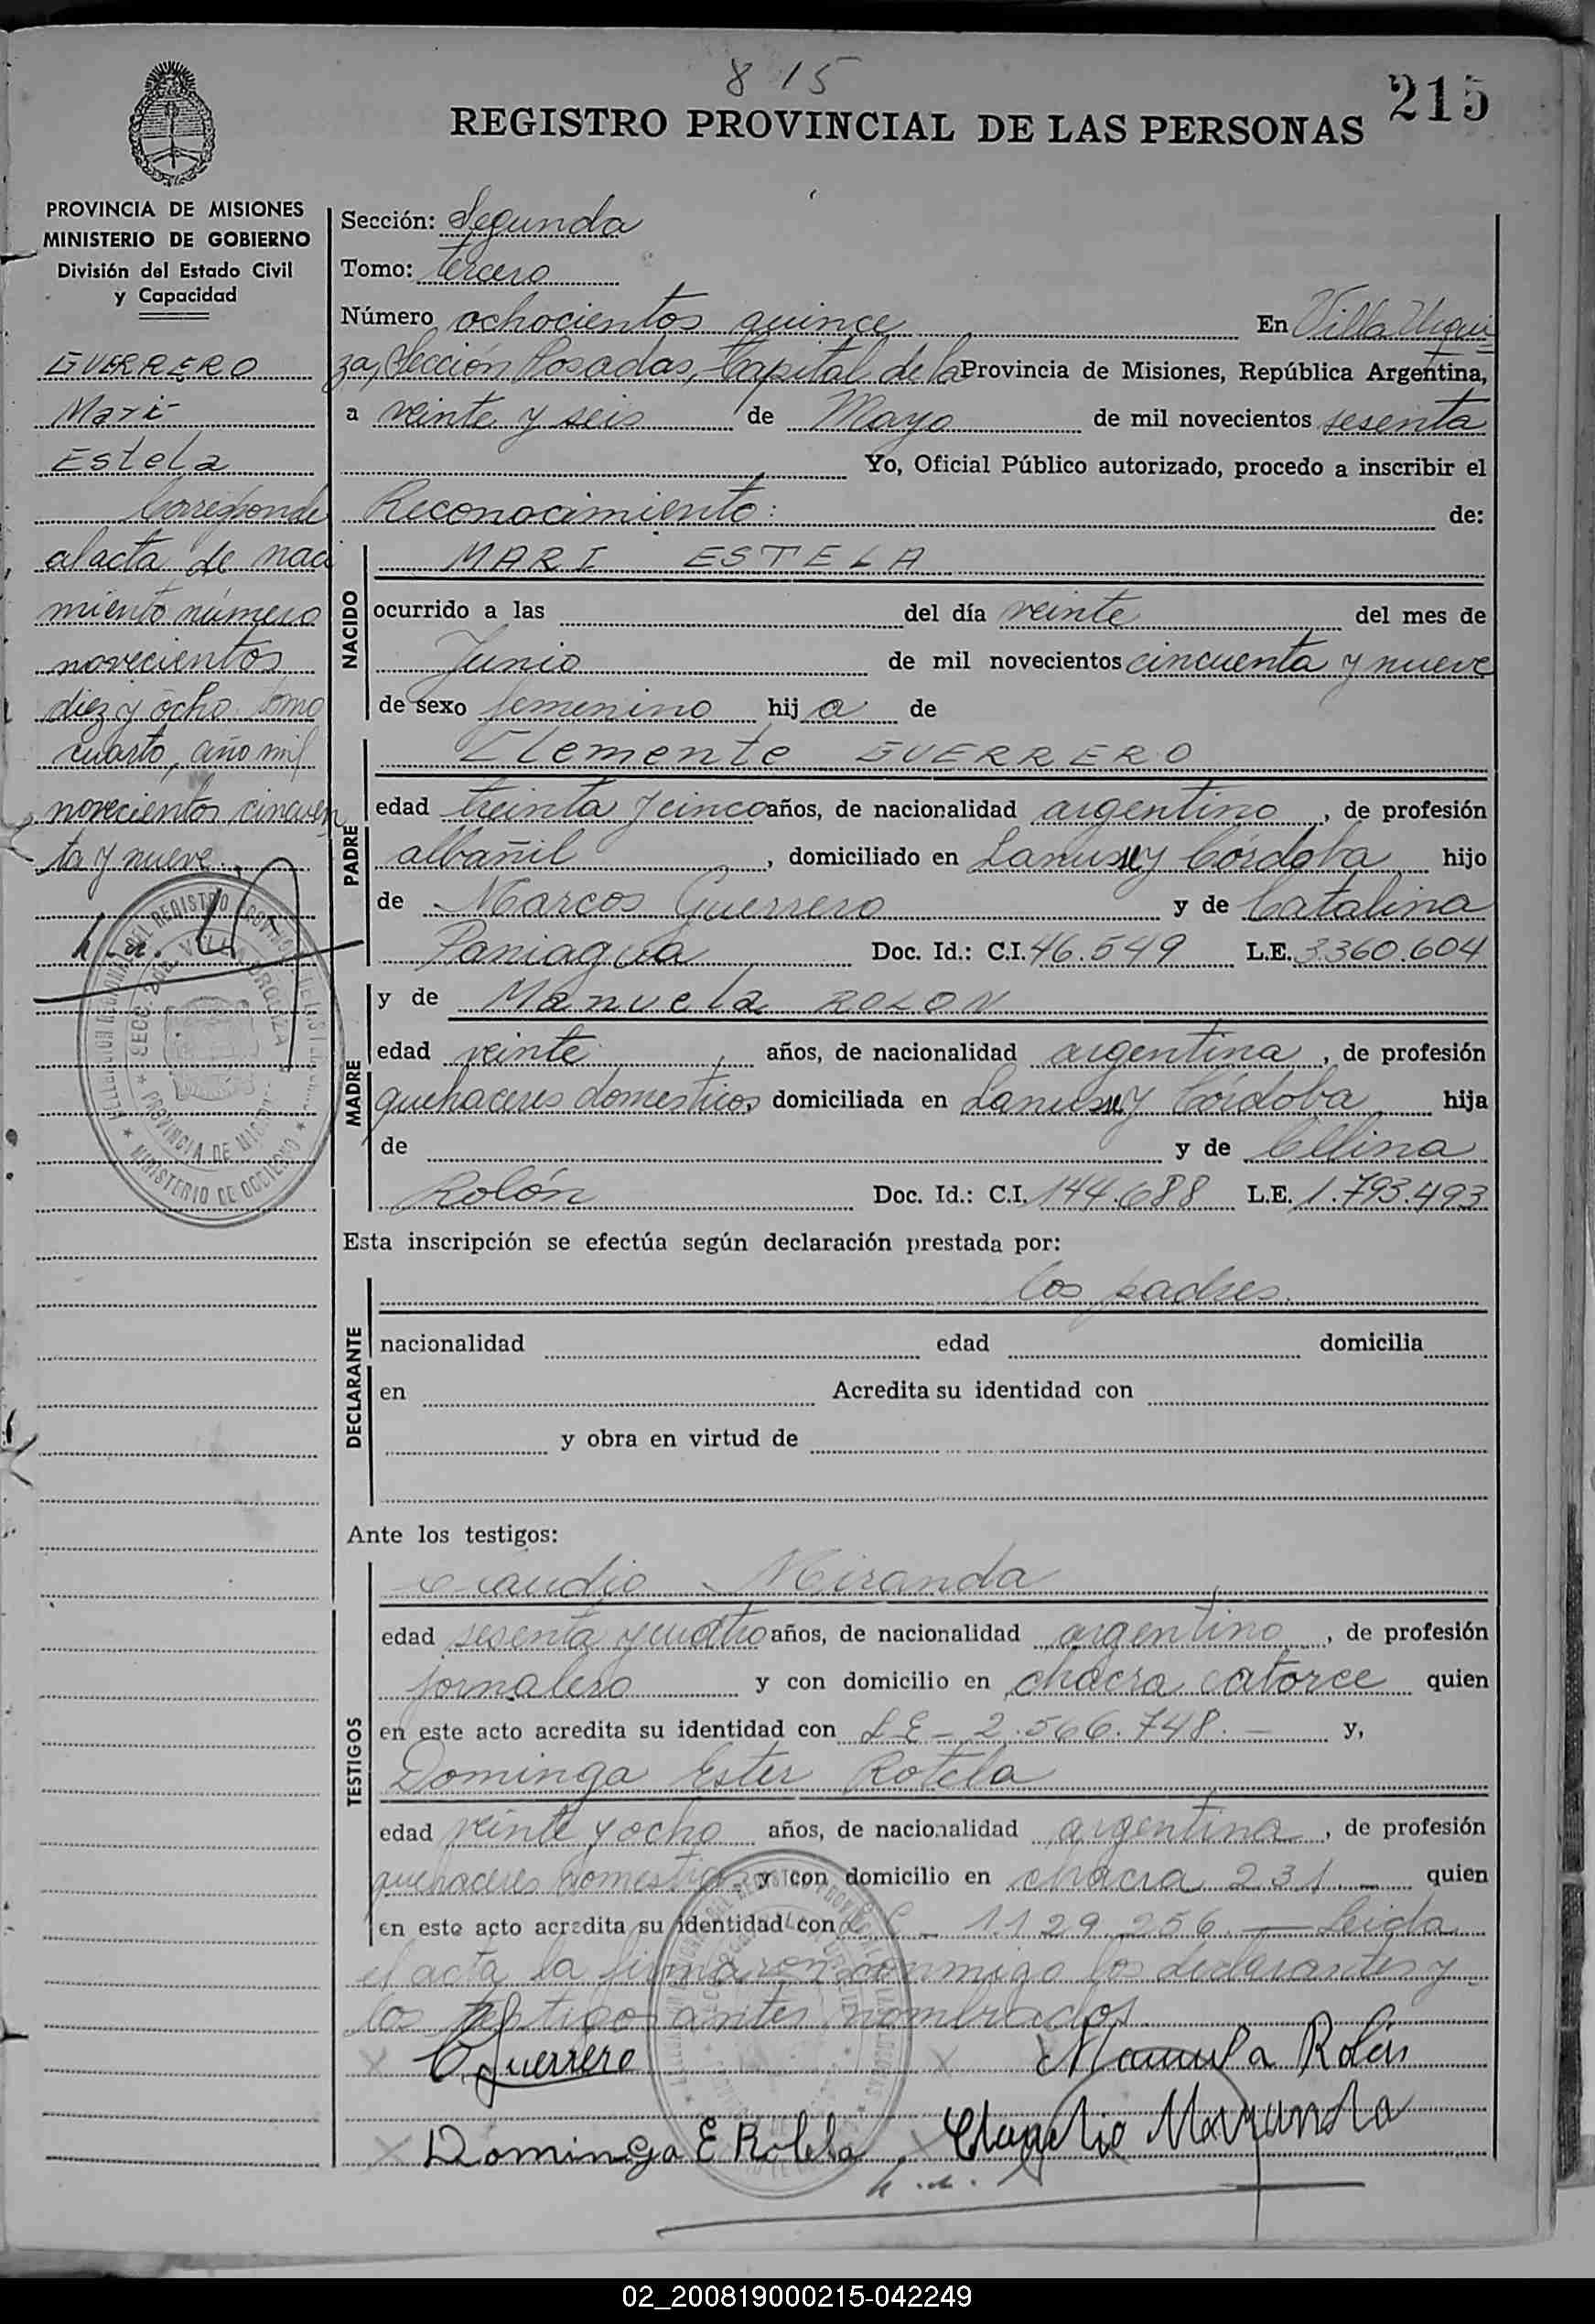 8 15
215
REGISTRO PROVINCIAL DE LAS PERSONAS
PROVINCIA DE MISIONES
MINISTERIO DE GOBIERNO
División del Estado Civil
y Capacidad
GUERRERO
Mari
Estela
Corresponde
al acta de naci
miento número
novecientos
diez y ocho tomo
cuarto, año mil
novecientos cincuen
ta y nueve.
Sección: Segunda
Tomo: tercero
Número ochocientos quince En Villa Urqui
za, Sección Posadas, Capital de la Provincia de Misiones, República Argentina,
a veinte y seis de Mayo de mil novecientos sesenta
Yo, Oficial Público autorizado, procedo a inscribir el
Reconocimiento: de:
NACIDO
MARI ESTELA
ocurrido a las del día veinte del mes de
Junio de mil novecientos cincuenta y nueve
de sexo femenino hija de
PADRE
Clemente GUERRERO
edad treinta y cinco años, de nacionalidad argentino, de profesión
albañil, domiciliado en Lanusse y Córdoba hijo
de Marcos Guerrero y de Catalina
Paniagua Doc. Id.: C.I. 46.549 L.E. 3.360.604
MADRE
y de Manuela ROLON
edad veinte años, de nacionalidad argentina, de profesión
quehaceres domesticos domiciliada en Lanusse y Córdoba hija
de y de Cellina
Rolón Doc. Id.: C.I. 144.688 L.E. 1.793.493
Esta inscripción se efectúa según declaración prestada por:
DECLARANTE
los padres.
nacionalidad edad domicilia
en Acredita su identidad con
y obra en virtud de
Ante los testigos:
TESTIGOS
Claudio Miranda
edad sesenta y cuatro años, de nacionalidad argentino, de profesión
jornalero y con domicilio en chacra catorce quien
en este acto acredita su identidad con L E - 2.566.748. - y,
Dominga Ester Rotela
edad veinte y ocho años, de nacionalidad argentina, de profesión
quehaceres domesticos y con domicilio en chacra 231. - quien
en este acto acredita su identidad con L C - 1129256. - Leida
el acta la firmaron conmigo los declarantes y
los testigos antes nombrados.
C. Guerrero Manuela Rolón
Dominga E Rotela
02_200819000215-042249